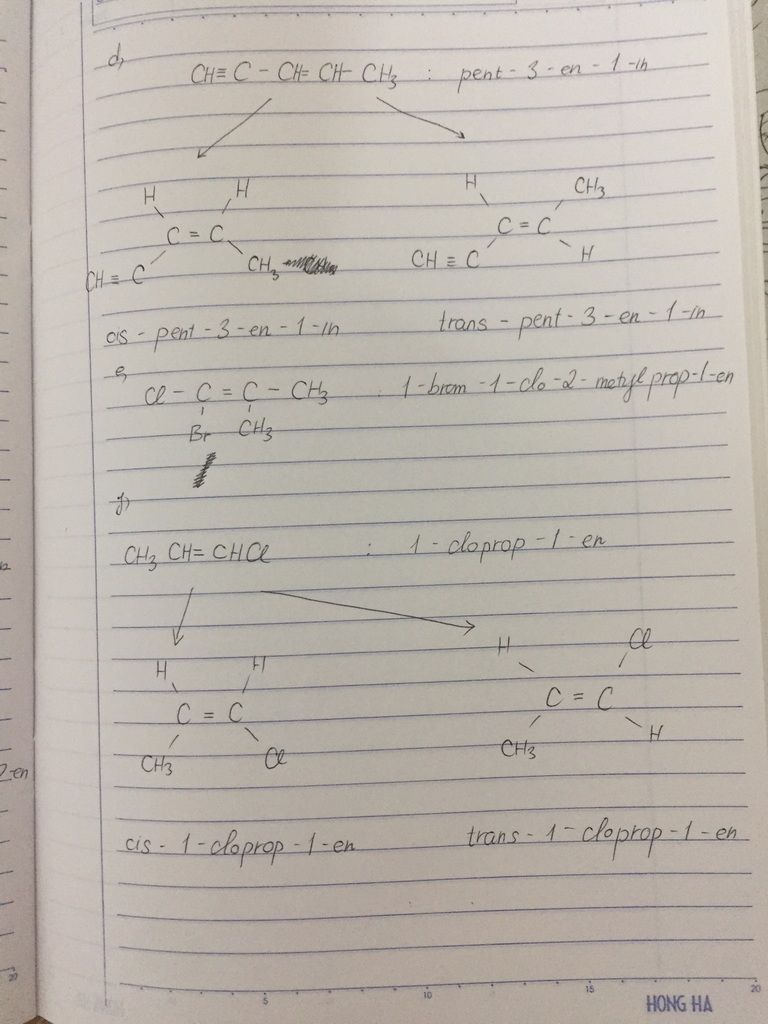 d,
CH≡C - CH=CH-CH₃ : pent-3-en-1-in
H H
C = C
CH≡C CH₃
H CH₃
C = C
CH≡C H
cis-pent-3-en-1-in trans-pent-3-en-1-in
e,
Cl - C = C - CH₃ : 1-brom-1-clo-2-metylprop-1-en
Br CH₃
f,
CH₃CH=CHCl : 1-cloprop-1-en
H H
C = C
CH₃ Cl
H Cl
C = C
CH₃ H
cis-1-cloprop-1-en trans-1-cloprop-1-en
2-en
5 10 15 20
HONG HA